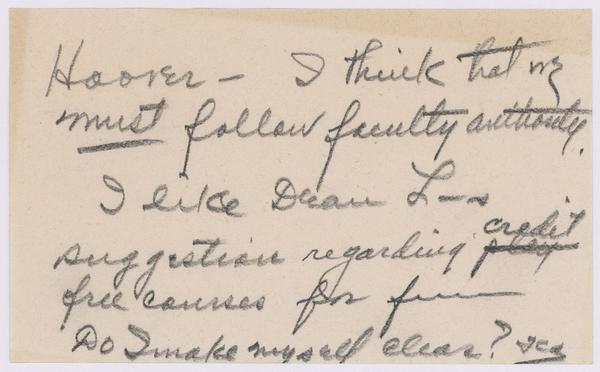 Hoover - I think that we
must follow faculty authority.
I like Dean L--s
suggestion regarding credit
free courses for fun
Do I make myself clear?